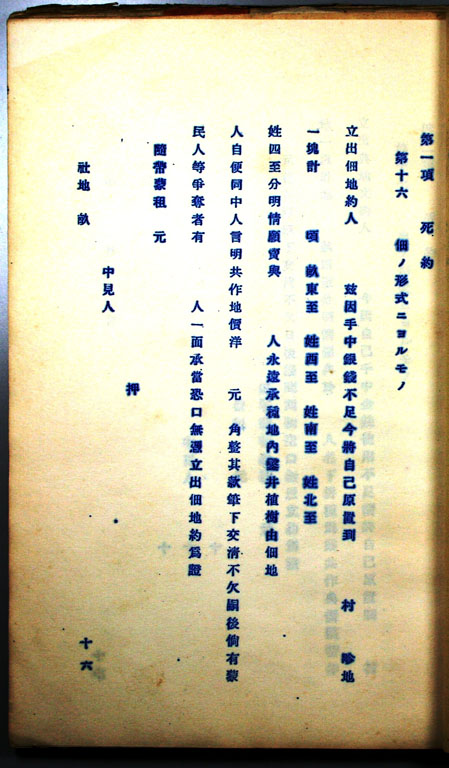 第一項 死約
第十六 佃ノ形式ニヨルモノ
立出佃地約人 茲因手中銀錢不足今將自己原置到 村 地
一塊計 頃 畝東至 姓西至 姓南至 姓北至
姓四至分明情願賣與 人永遠承種地內鑿井植樹由佃地
人自便同中人言明共作地價洋 元 角整其款筆下交清不欠嗣後倘有蒙
民人等爭奪者有 人一面承當恐口無憑立出佃地約爲證
隨帶蒙租 元
中見人 押
社地 畝
十六